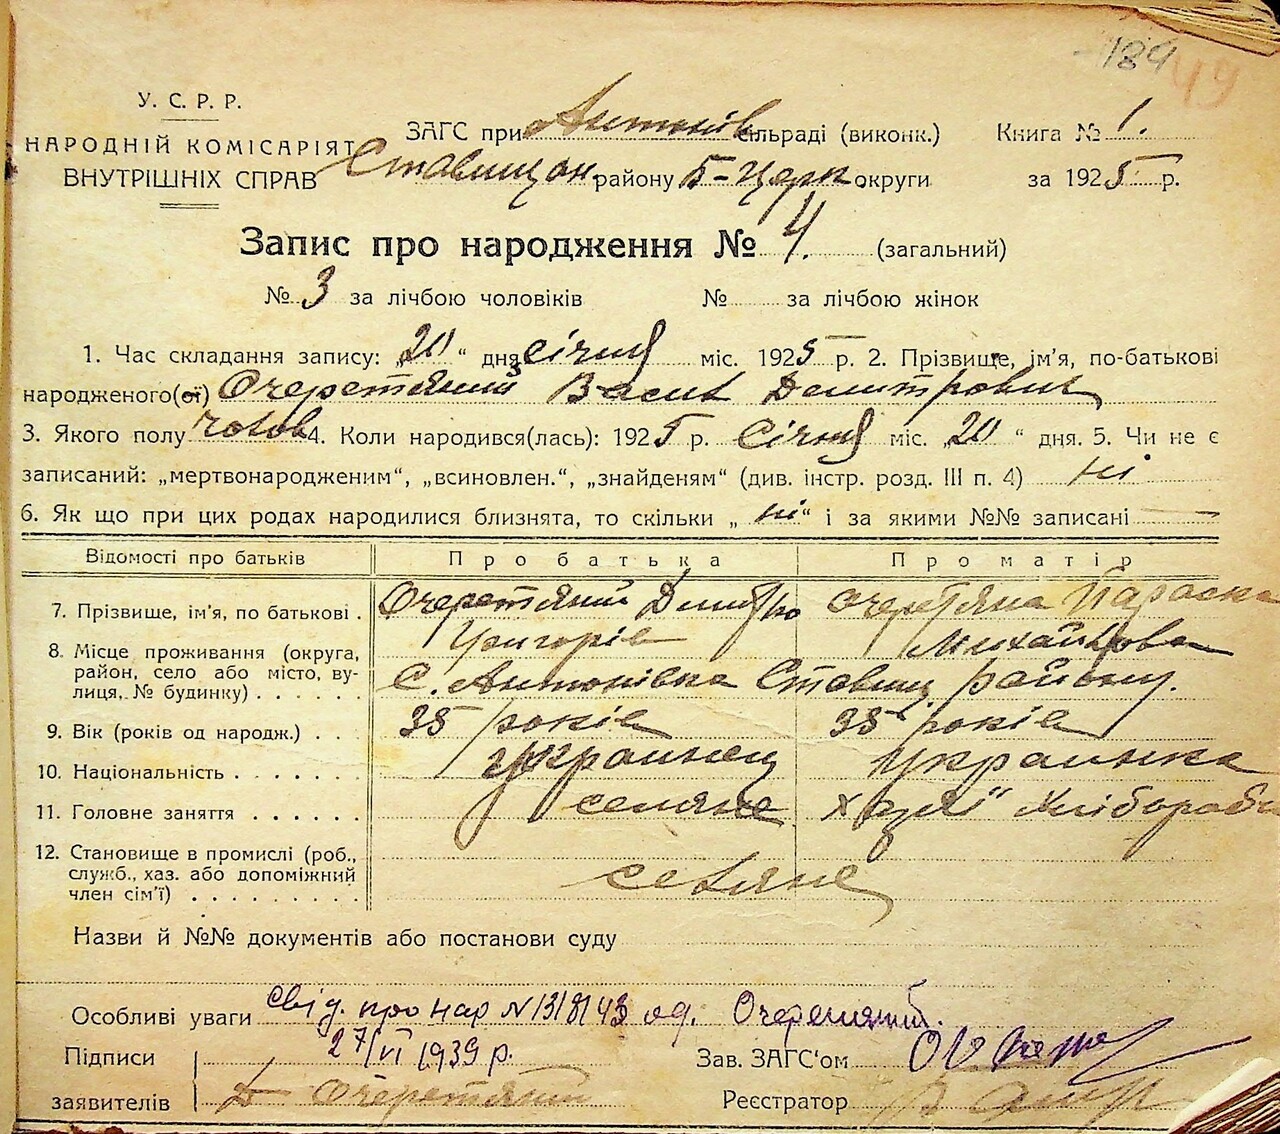 184 49
У. С. Р. Р.
НАРОДНІЙ КОМІСАРІЯТ
ВНУТРІШНІХ СПРАВ
ЗАГС при Антонів сільраді (виконк.) Книга № 1.
Ставищан. району Б-Церк. округи за 1925 р.
Запис про народження № 4. (загальний)
№ 3 за лічбою чоловіків № за лічбою жінок
1. Час складання запису: „20" дня січня міс. 1925 р. 2. Прізвище, ім'я, по-батькові
народженого(ої) Очеретяний Василь Дмитрович
3. Якого полу чолов 4. Коли народився(лась): 1925 р. Січня міс. „20" дня. 5. Чи не є
записаний: „мертвонародженим", „всиновлен.", „знайденям" (див. інстр. розд. III п. 4) ні
6. Як що при цих родах народилися близнята, то скільки „ні" і за якими №№ записані —
Відомості про батьків Про батька Про матір
7. Прізвище, ім'я, по батькові . Очеретяний Дмитро Очеретяна Параска
Григорів Михайлова
8. Місце проживання (округа, район, село або місто, вулиця, № будинку) . . . . . . С. Антонівка Ставищ. району.
9. Вік (років од народж.) . . 35 років 35 років
10. Національність . . . . . . . Украинец Украинка
11. Головне заняття . . . . . . селяне хазяй
12. Становище в промислі (роб., служб., хаз. або допоміжний член сім'ї) . . . . . . . . . селяне
Назви й №№ документів або постанови суду
Особливі уваги свід. про нар N 131843 од. Очеретяний.
27/VI 1939 р.
Підписи
заявителів Д Очеретяний
Зав. ЗАГС'ом
Реєстратор